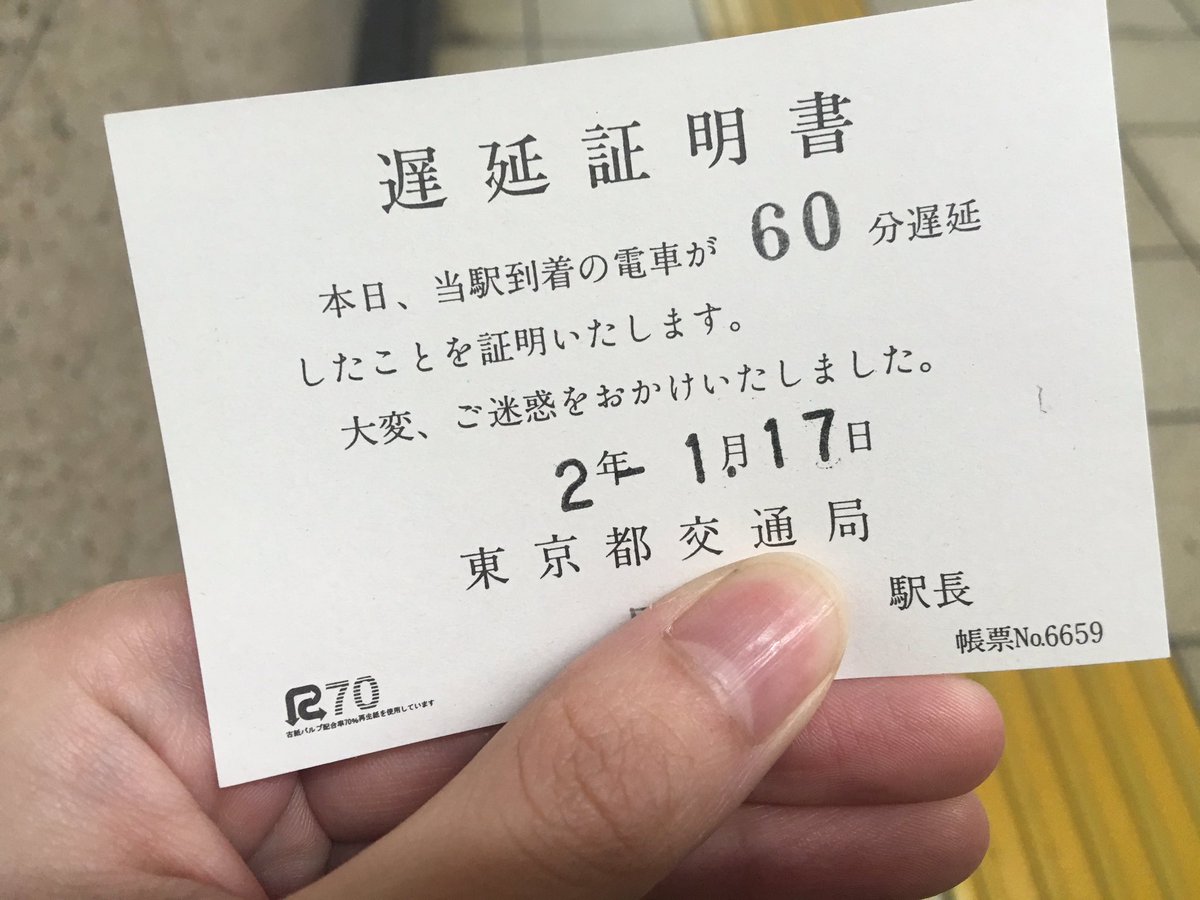 遅延証明書
本日、当駅到着の電車が 60 分遅延
したことを証明いたします。
大変、ご迷惑をおかけいたしました。
2年 1月17日
東京都交通局
駅長
帳票No.6659
R70
古紙パルプ配合率70%再生紙を使用しています